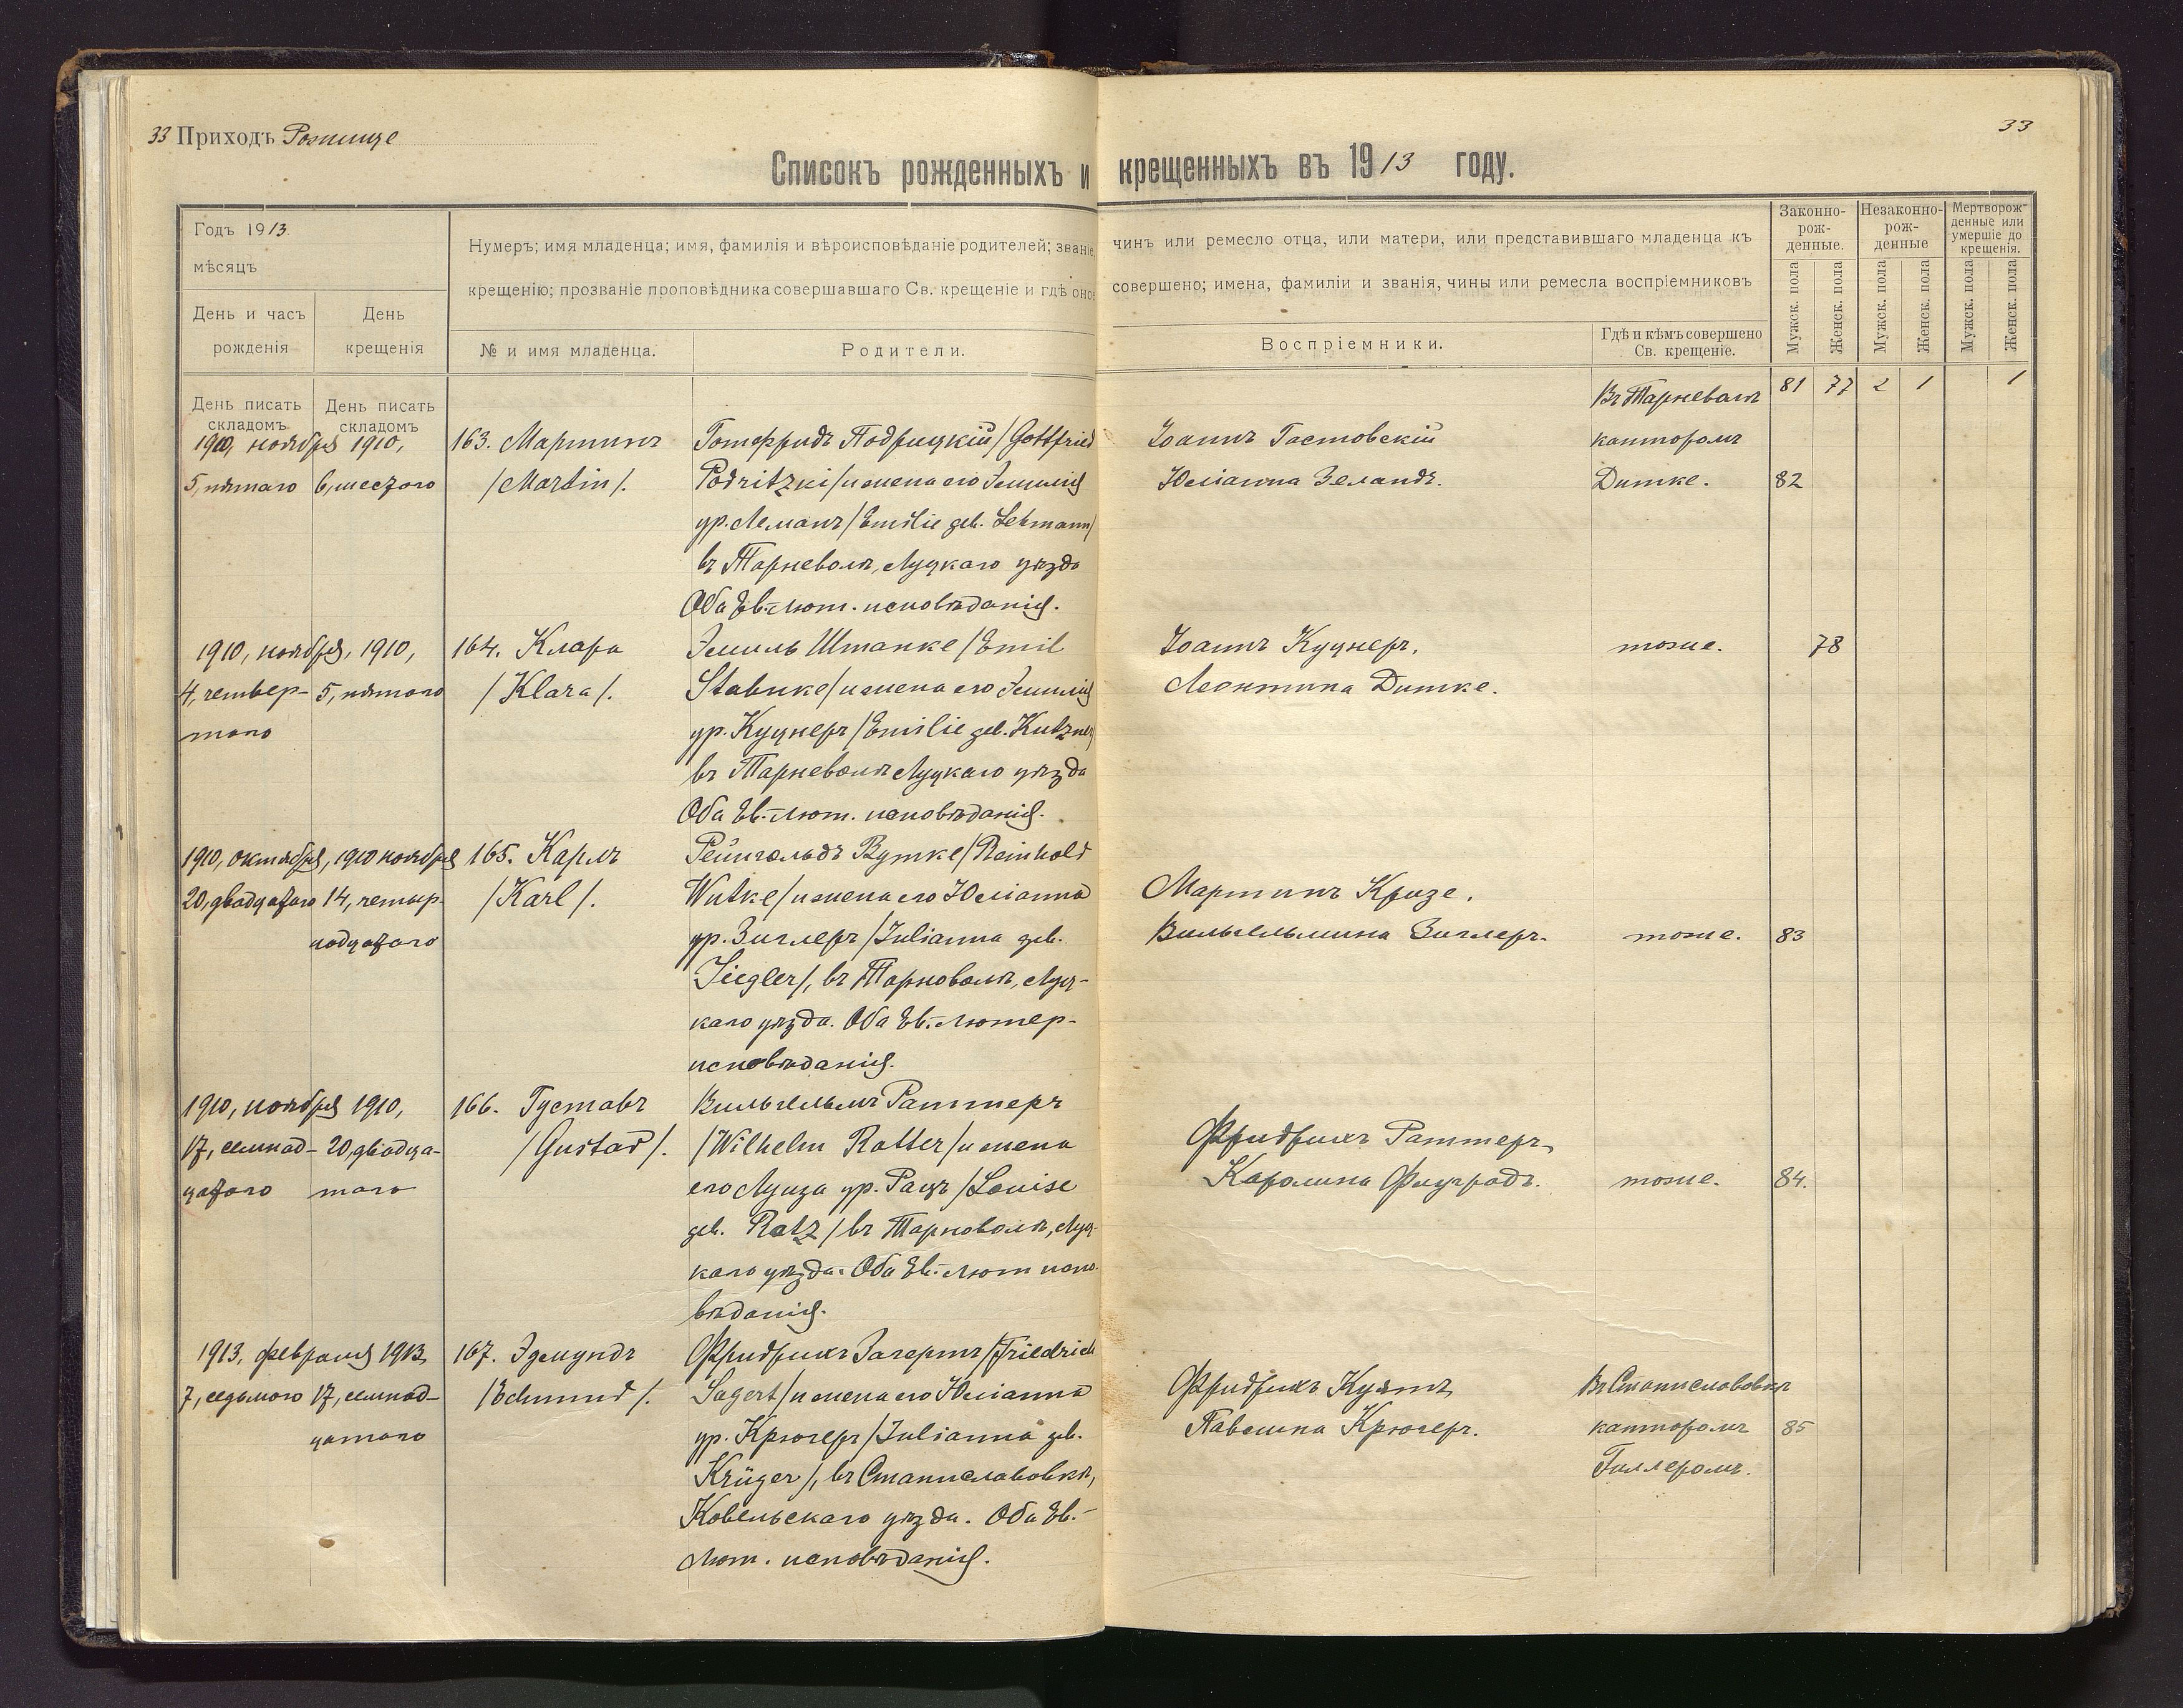 33 Приходъ Рожище
33
Списокъ рожденныхъ и крещенныхъ въ 1913 году.
Годъ 1913
мѣсяцъ
День и часъ рожденія
День крещенія
Нумеръ; имя младенца; имя, фамилія и вѣроисповѣданіе родителей; званіе, чинъ или ремесло отца, или матери, или представившаго младенца къ
крещенію; прозваніе проповѣдника совершавшаго Св. крещеніе и гдѣ оное совершено; имена, фамиліи и званія, чины или ремесла воспріемниковъ
№ и имя младенца.
Родители.
Воспріемники.
Гдѣ и кѣмъ совершено
Св. крещеніе.
Законно-
рож-
денные.
Незаконно-
рож-
денные
Мертворож-
денные или
умершіе до
крещенія.
Мужск. пола
Женск. пола
Мужск. пола
Женск. пола
Мужск. пола
Женск. пола
День писать
складомъ
День писать
складомъ
81 77 2 1 1
1910, ноября 1910,
5, пятаго 6, шестого
163. Мартинъ
/Martin/.
Готфридъ Подрицкій /Gottfried
Podritzki/ и жена его Эмилія
ур. Леманъ /Emilie geb. Lehmann/
въ Тарневолѣ, Луцкаго уѣзда
Оба Ев.-Лют. исповѣданія.
Іоаннъ Гастовскій
Юліанна Зеландъ.
Въ Тарневолѣ
канторомъ
Дитке.
82
1910, ноября, 1910,
4, четвер- 5, пятаго
таго
164. Клара
/Klara/.
Эмиль Штанке /Emil
Stabnke/ и жена его Эмилія
ур. Куцнеръ /Emilie geb. Kutzner/
въ Тарневолѣ Луцкаго уѣзда
Оба Ев.-Лют. исповѣданія.
Іоаннъ Куцнеръ,
Леонтина Дитке.
тоже.
78
1910, октября, 1910 ноября
20, двадцатаго 14, четыр-
надцатаго
165. Карлъ
/Karl/.
Рейнгольдъ Вутке /Reinhold
Wutke/ и жена его Юліанна
ур. Зиглеръ /Julianna geb.
Ziegler/, въ Тарноволѣ, Луц-
каго уѣзда. Оба Ев.-Лютер-
исповѣданія.
Мартинъ Кризе.
Вильгельмина Зиглеръ.
тоже.
83
1910, ноября 1910,
17, семнад- 20, двадца-
цатаго таго
166. Густавъ
/Gustav/.
Вильгельмъ Раттеръ
/Wilhelm Ratter/ и жена
его Луиза ур. Рацъ /Louise
geb. Ratz/ въ Тарноволѣ, Луц-
каго уѣзда. Оба Ев.-Лют испо-
вѣданія.
Фридрихъ Раттеръ,
Каролина
тоже.
84.
1913, февраля 1913,
7, седьмого 17, семнад-
цатаго
167. Эдмундъ
/Edmund/.
Фридрихъ Загертъ /Friedrich
Sagert/ и жена его Юліанна
ур. Крюгеръ /Julianna geb.
Krüger/, въ Станиславовкѣ,
Ковельскаго уѣзда. Оба Ев.-
Лют. исповѣданія.
Фридрихъ Куятъ,
Павлина Крюгеръ.
Въ Станиславовкѣ
канторомъ
Гиллеромъ.
85